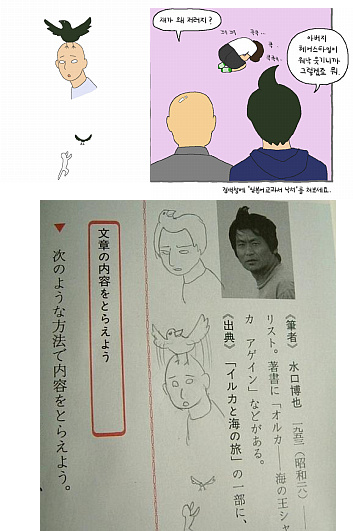 쟤가 왜 저러지?
ㅋㅋ ㅋㅋ..
아버지
헤어스타일이
워낙 웃기니까
그렇겠죠 뭐.
검색창에 "일본어교과서 낙서"를 쳐보세요.
《筆者》 水口博也 一九五三(昭和二八)―
リスト。著書に「オルカ――海の王シャ
カ アゲイン」などがある。
《出典》 「イルカと海の旅」の一部に、
文章の内容をとらえよう
▼ 次のような方法で内容をとらえよう。